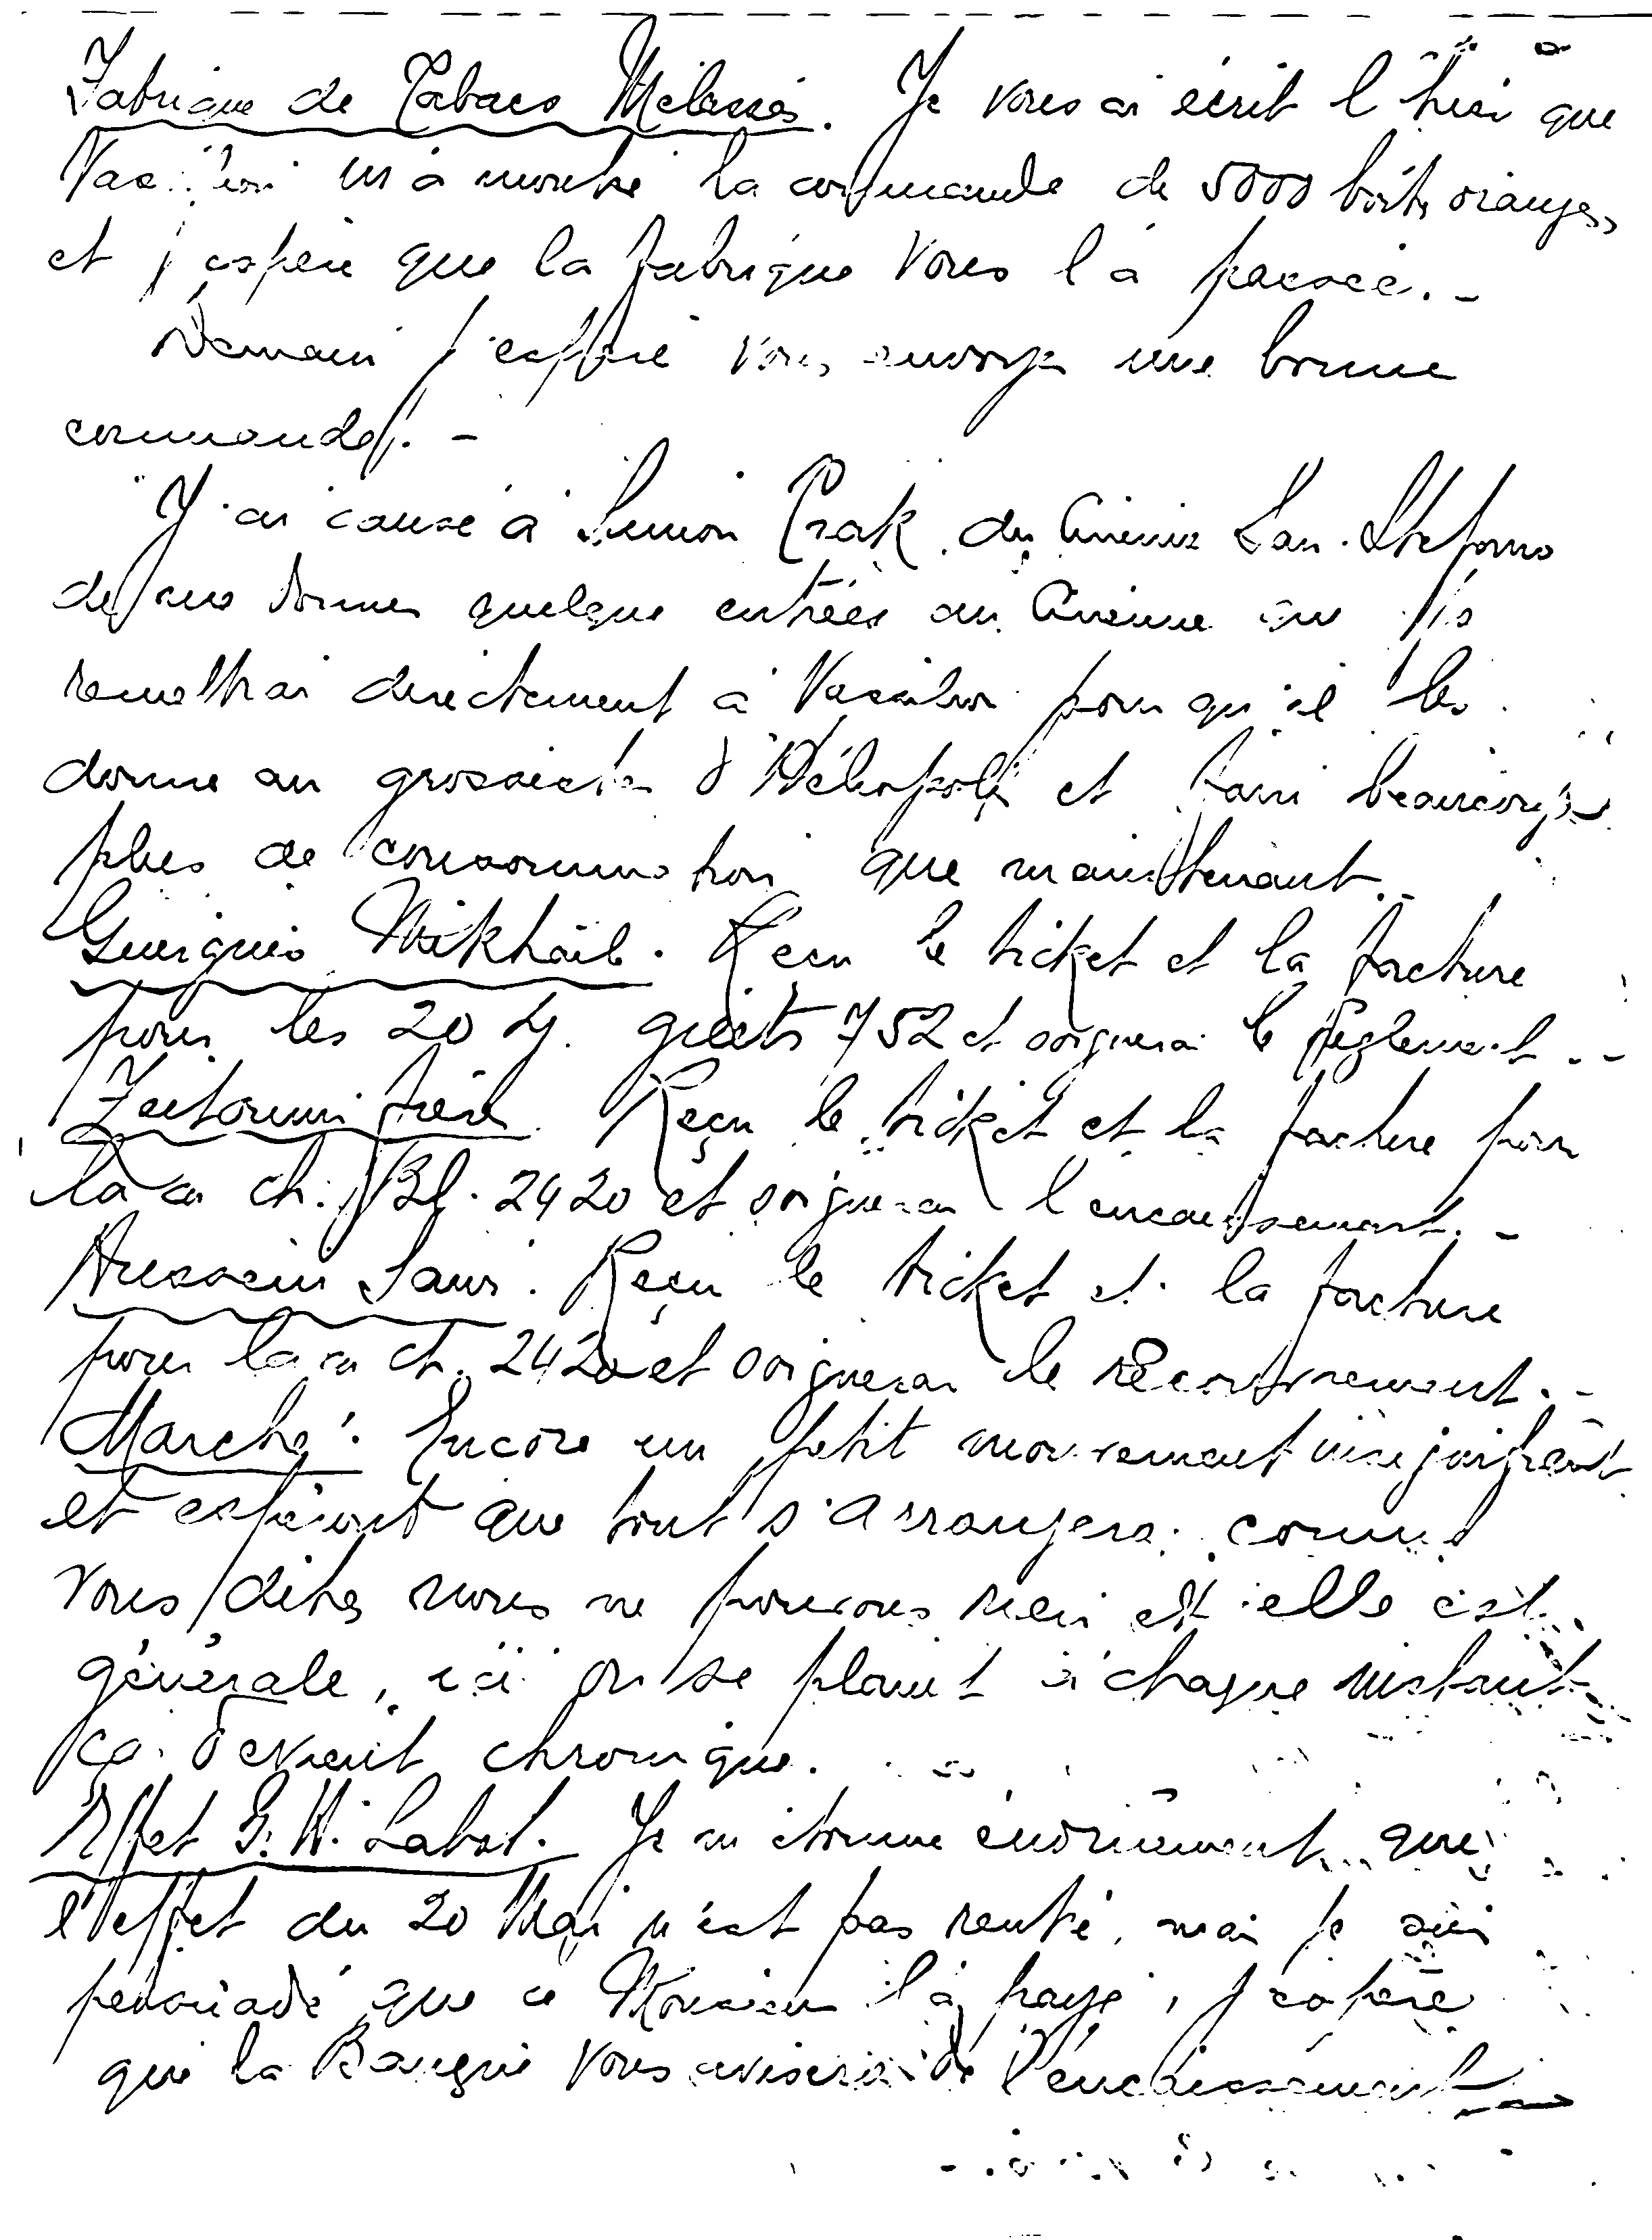 Fabrique de Tabacs Mélassés. Je vous ai écrit l'hier que
m'a montré la commande de 5000 boîts oranges,
et j'espère que la fabrique vous l'a passée. -
Demain j'espère vous envoyer une bonne
commande. -
J'ai causé à Simon du Cinéma San Stefano
de me donner quelque entrées au Cinéma que je les
remettrai directement à Vassilion pour qu'il les
donne au grossiste d'Héliopolis et faire beaucoup
plus de consommation que maintenant. -
Guirguis Mikhaïl. Reçu le ticket et la facture
pour les 20 752 et soignerai le règlement. -
Zeitouni frère. Reçu le ticket et la facture pour
la ca ch. Bl. 2420 et soignerai l'encaissement. -
Hussein Sami. Reçu le ticket et la facture
pour la ca ch. 2420 et soignerai le recouvrement. -
Marché. Encore un petit mouvement insignifiant
et espérant que tout s'arrangera. comme
vous dites nous ne pouvons rien et elle est
générale, ici on se plaint à chaque instant
ça devient chronique.
Effet G. H. Labat. Je m'étonne énormement que
l'effet du 20 Mai n'est pas rentré, mai je suis
persuadé que ce Monsieur l'a payé, j'espère
que la Banque vous avisera de l'encaissement